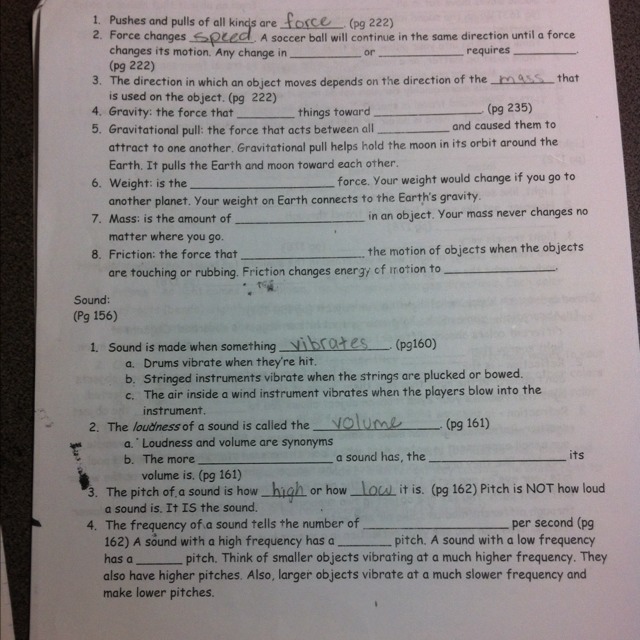 1. Pushes and pulls of all kinds are force. (pg 222)
2. Force changes speed. A soccer ball will continue in the same direction until a force
changes its motion. Any change in ____________ or ______________ requires __________.
(pg 222)
3. The direction in which an object moves depends on the direction of the mass that
is used on the object. (pg 222)
4. Gravity: the force that _________ things toward _________________. (pg 235)
5. Gravitational pull: the force that acts between all ___________ and caused them to
attract to one another. Gravitational pull helps hold the moon in its orbit around the
Earth. It pulls the Earth and moon toward each other.
6. Weight: is the ______________________ force. Your weight would change if you go to
another planet. Your weight on Earth connects to the Earth's gravity.
7. Mass: is the amount of ____________________ in an object. Your mass never changes no
matter where you go.
8. Friction: the force that ___________________ the motion of objects when the objects
are touching or rubbing. Friction changes energy of motion to _________________.
Sound:
(Pg 156)
1. Sound is made when something vibrates. (pg160)
a. Drums vibrate when they're hit.
b. Stringed instruments vibrate when the strings are plucked or bowed.
c. The air inside a wind instrument vibrates when the players blow into the
instrument.
2. The loudness of a sound is called the volume. (pg 161)
a. Loudness and volume are synonyms
b. The more _____________________ a sound has, the _____________________ its
volume is. (pg 161)
3. The pitch of a sound is how high or how low it is. (pg 162) Pitch is NOT how loud
a sound is. It IS the sound.
4. The frequency of a sound tells the number of ______________________ per second (pg
162) A sound with a high frequency has a ________ pitch. A sound with a low frequency
has a _______ pitch. Think of smaller objects vibrating at a much higher frequency. They
also have higher pitches. Also, larger objects vibrate at a much slower frequency and
make lower pitches.